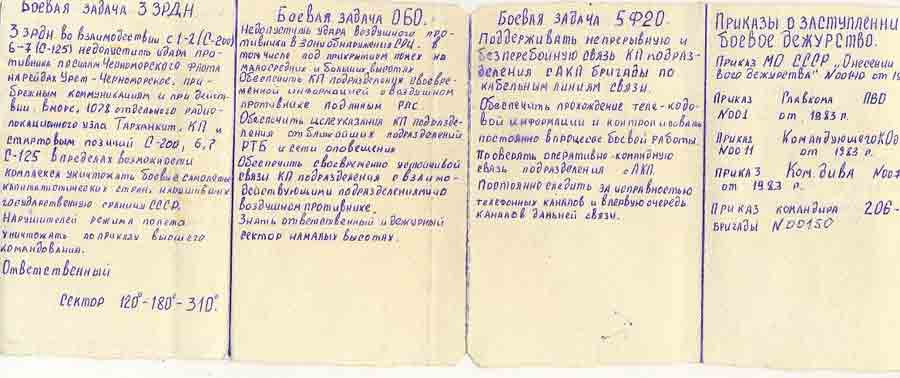 Боевая задача 3 ЗРДН
3 ЗРДН во взаимодействии с 1-2 (С-200)
6-7 (С-125) недопустить удара про-
тивника по силам Черноморского флота
на рейдах Урет-Черноморское, при-
брежным коммуникациям и при дейст-
вии в море, 1078 отдельного радио-
локационного узла Тарханкит, КП и
стартовым позиций С-200, 6,7
С-125 в пределах возможности
комплекса уничтожать боевые самолеты
капиталистических стран, нарушивших
государственную границу СССР.
Нарушителей режима полета
уничтожать по приказу вышего
командования.
Ответственный
сектор 120°-180°-310°
Боевая задача ОБО.
Недопустить удара воздушного про-
тивника в зоне обнаружения СРЦ. в
том числе под прикрытием помех на
малых средних и больших высотах
Обеспечить КП подразделения своевре-
менной информацией о воздушном
противнике по данным РЛС.
Обеспечить целеуказания КП подразде-
ления от ближайших подразделений
РТБ и сети оповещения
Обеспечить своевременно устойчивой
связи КП подразделения с взаимо-
действующими подразделениями о
воздушном противнике.
Знать ответственный и дежурный
сектор на малых высотах.
Боевая задача 5Ф20.
Поддерживать непрерывную и
безперебойную связь КП подраз-
деления с АКП бригады по
кабельным линиям связи.
Обеспечить прохождение теле-кодо-
вой информации и контролировать
постоянно в процессе боевой работы.
Проверять оперативно-командную
связь подразделения с АКП.
Постоянно следить за исправностью
телефонных каналов и в первую очередь
каналов дальней связи.
Приказы о заступлении
Боевое дежурство.
Приказ МО СССР „О несении
вого дежурства" N00140 от 19
Приказ Главкома ПВО
N001 от 1983 г.
Приказ Командующего КОд
N0011 от 1983 г.
Приказ Ком.дива N007
от 1983 г.
Приказ командира 206-
бригады N00150